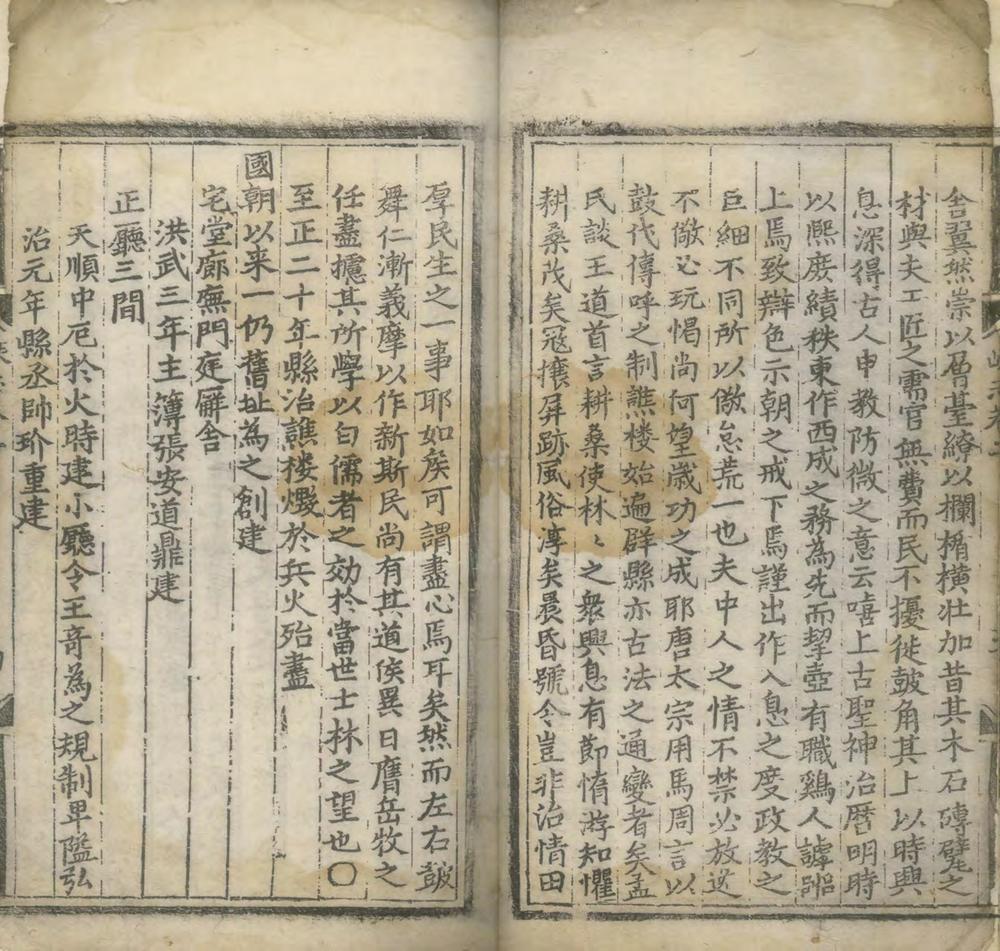 舍翼然崇以層臺繚以欄楯横壮加昔其木石磚甓之
材與夫工匠之需官無費而民不擾徙鼓角其上以時興
息深得古人申教防微之意云嘻上古聖神治曆明時
以熙庶績秩東作西成之務為先而挈壺有職鷄人謼
上焉致辯色示朝之戒下焉謹出作入息之度政教之
巨細不同所以儆怠荒一也夫中人之情不禁必放逸
不儆必玩愒尚何望歳功之成耶唐太宗用馬周言以
鼓代傳呼之制譙楼始遍郡縣亦古法之通變者矣孟
氏談王道首言耕桑使林〻之衆興息有節惰游知懼
耕桑茂矣冦攘屏跡風俗淳矣晨昏號令豈非治情田
厚民生之一事耶如矦可謂盡心焉耳矣然而左右皷
舞仁漸義摩以作新斯民尚有其道俟異日膺岳牧之
任盡攄其所學以白儒者之効於當世士林之望也〇
至正二十年縣治譙楼燬於兵火殆盡
國朝以来一仍舊址為之創建
宅堂廊廡門庭廨舎
洪武三年主簿張安道鼎建
正廳三間
天順中厄於火時建小廳令王竒為之規制卑隘弘
治元年縣丞帥玠重建